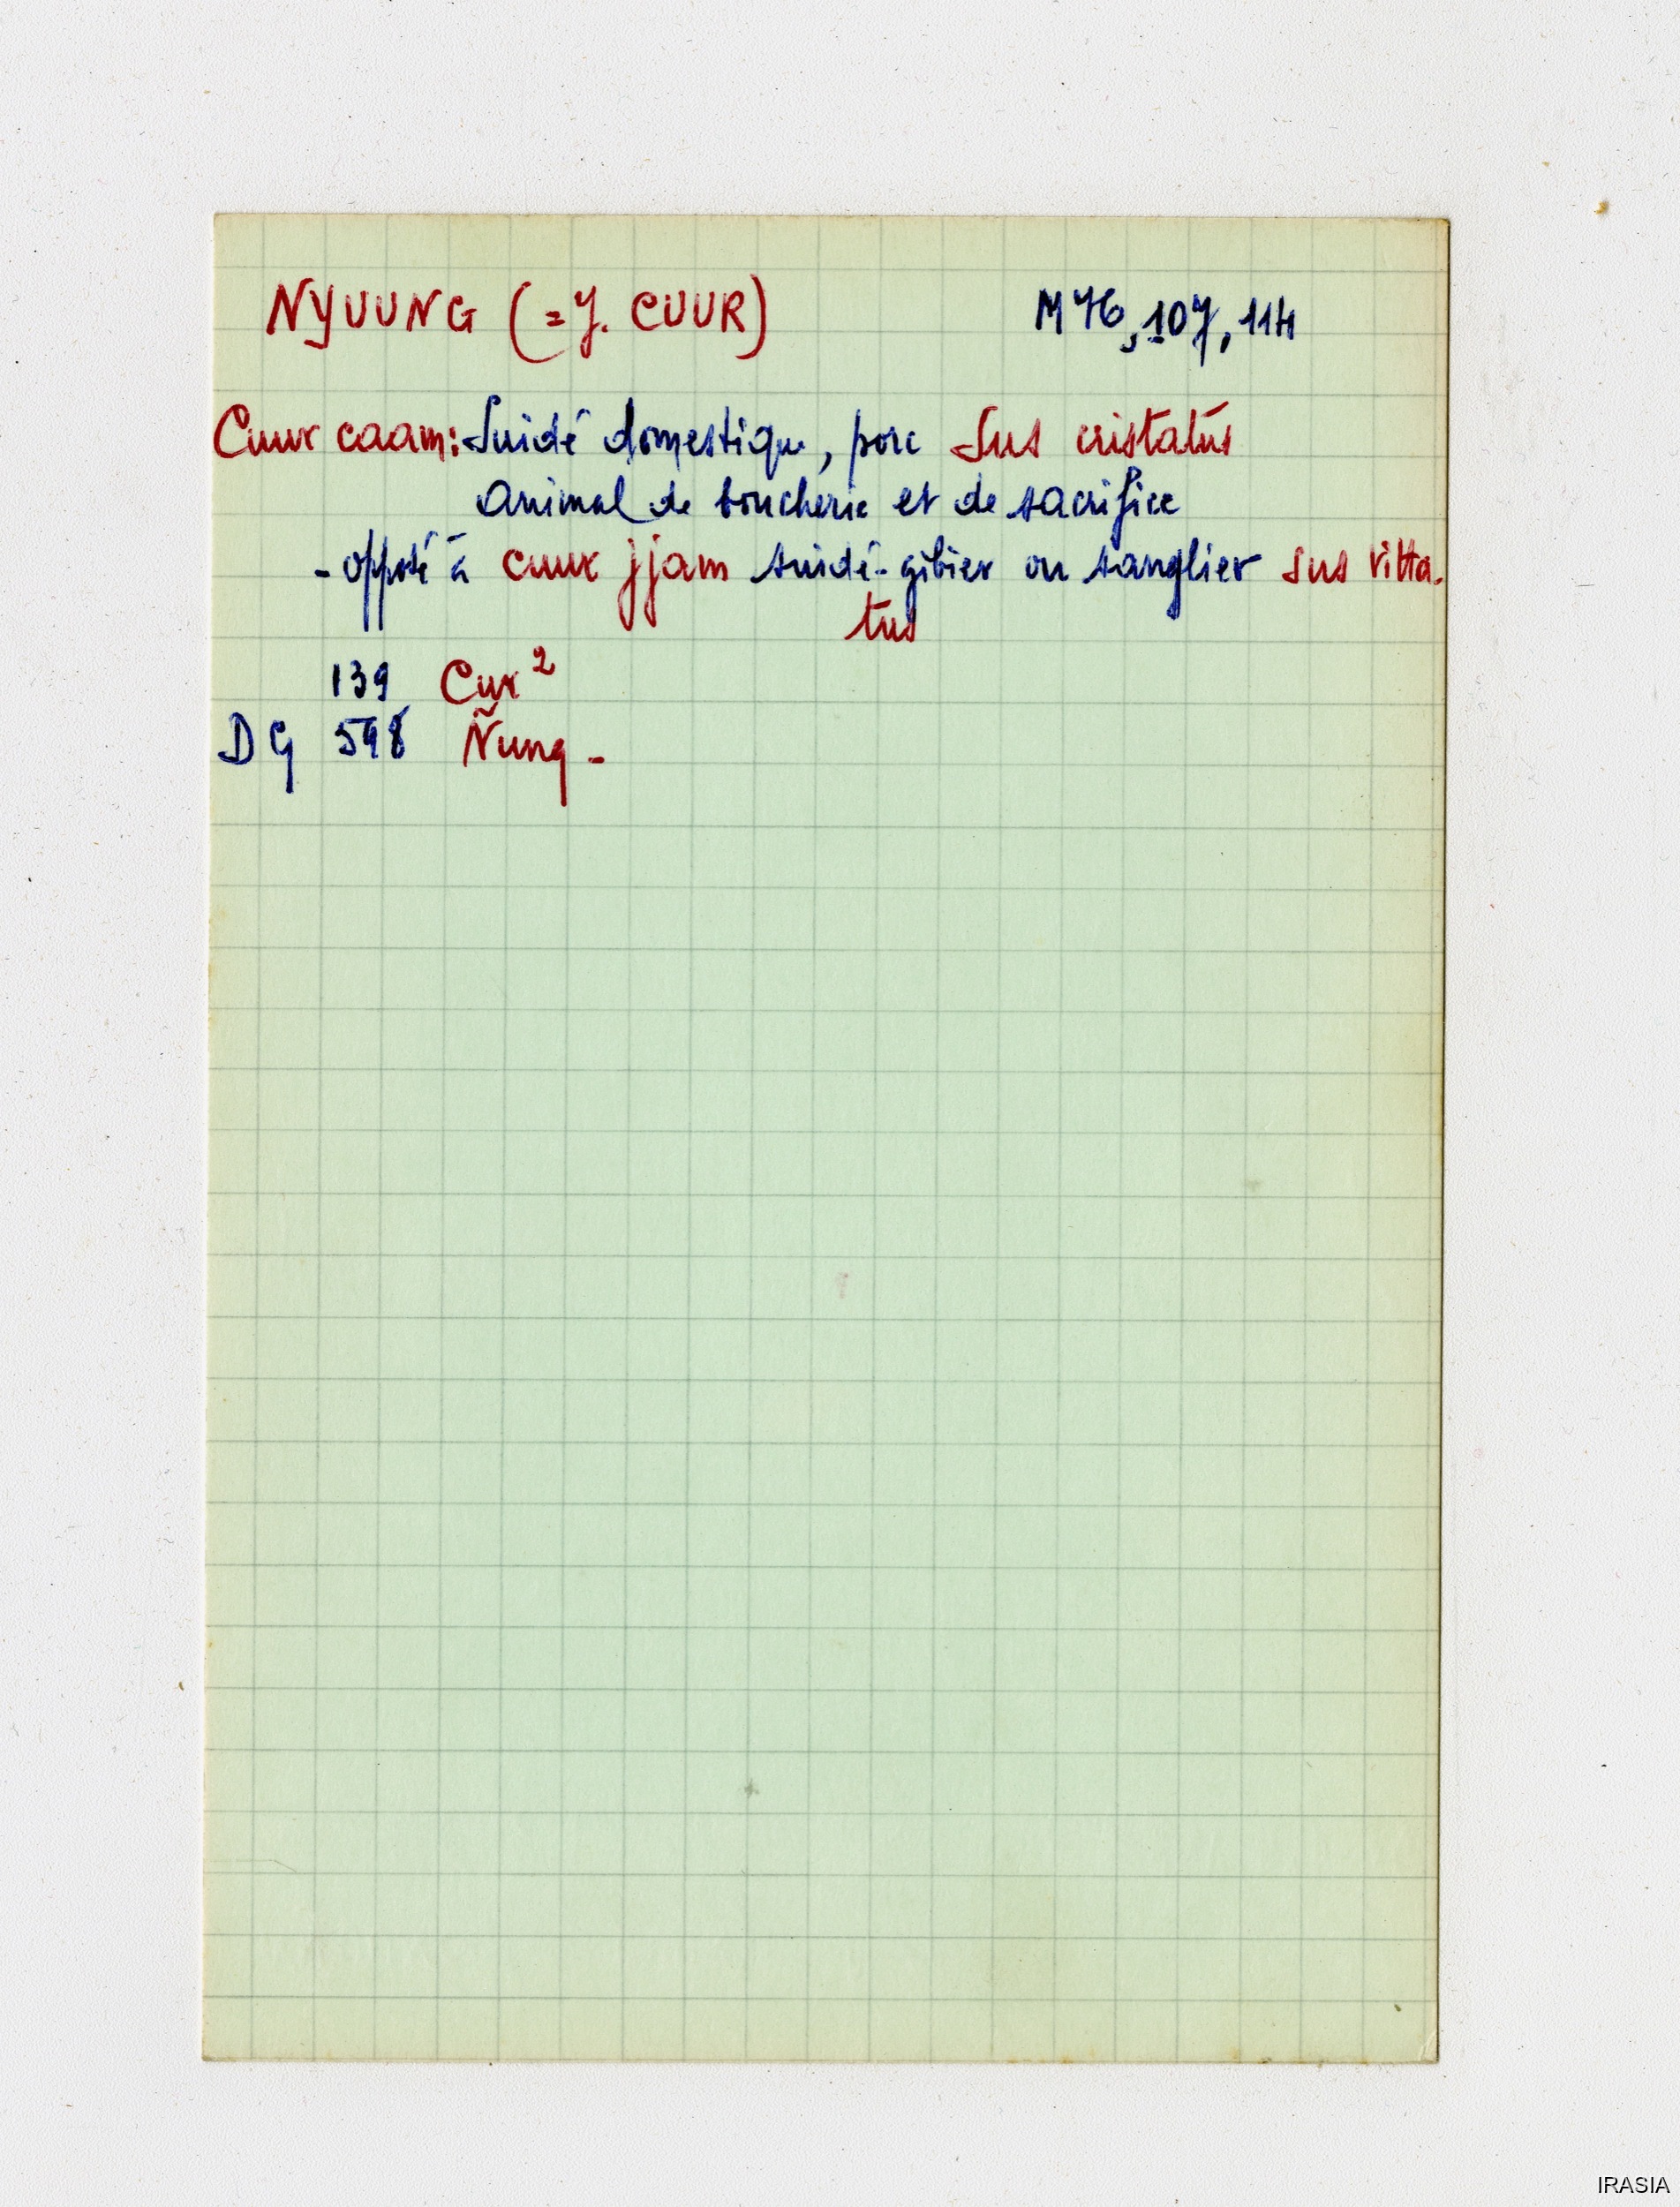 NYUUNG (= Y. CUUR) M 76, 107, 114
Cuur caam: Suidé domestique, porc Sus cristatus
animal de boucherie et de sacrifice
- opposé à cuur jjam suidé-gibier ou sanglier sus vitta-
tus
139 Cur²
DG 598 Ñung -
IRASIA